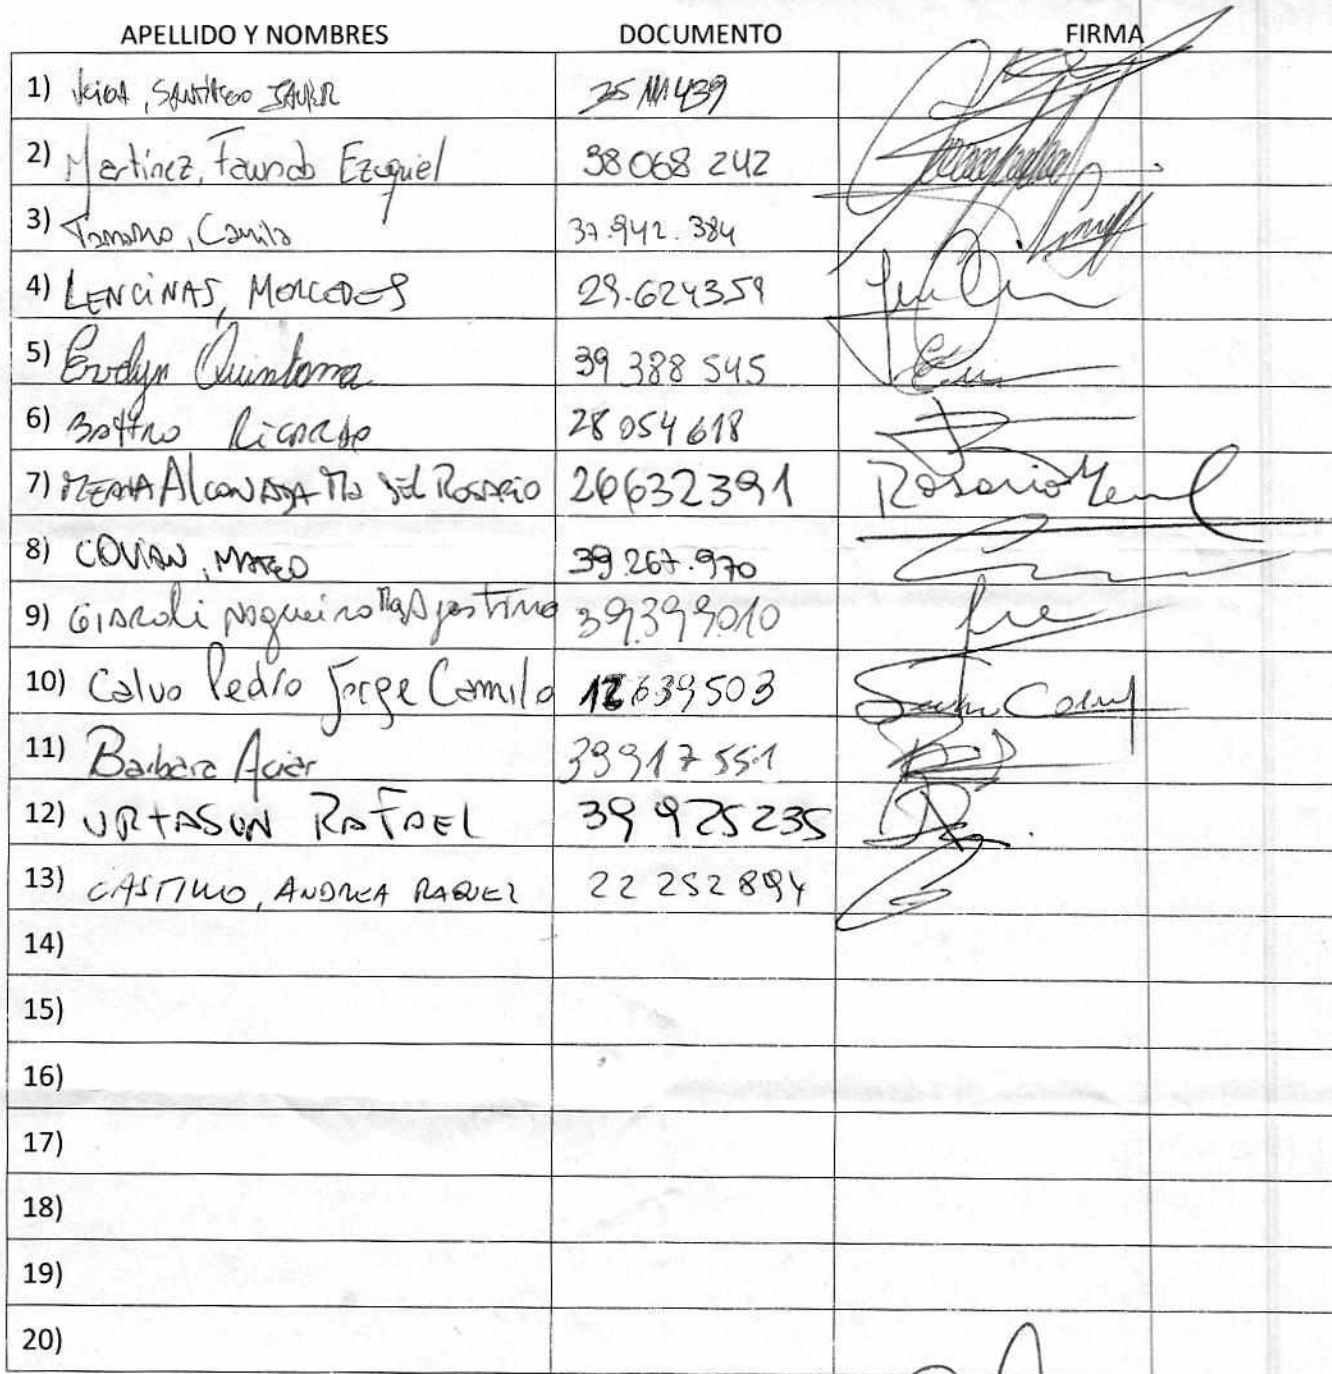 APELLIDO Y NOMBRES DOCUMENTO FIRMA
1) Veiga, Santiago Javier 35 111 439
2) Martínez, Facundo Ezequiel 38 068 242
3) Camila 37.942.384
4) LENCINAS, MERCEDES 29.624359
5) Evelyn Quintana 39 388 545
6) Battro Ricardo 28 054 618
7) Alconada Ma del Rosario 26632391 Rosario
8) COVIAN, MATEO 39.267.970
9) Giaroli Nogueiro Ma Agostina 39399010
10) Calvo Pedro Jorge Camilo 12639503
11) Barbara Aciar 39917551
12) URTASUN RAFAEL 39 925235
13) CASTILLO, ANDREA RAQUEL 22 252 894
14)
15)
16)
17)
18)
19)
20)